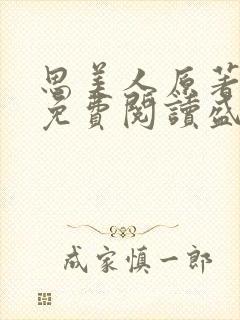 思美人原著
免費閱讀盛
成家慎一郎